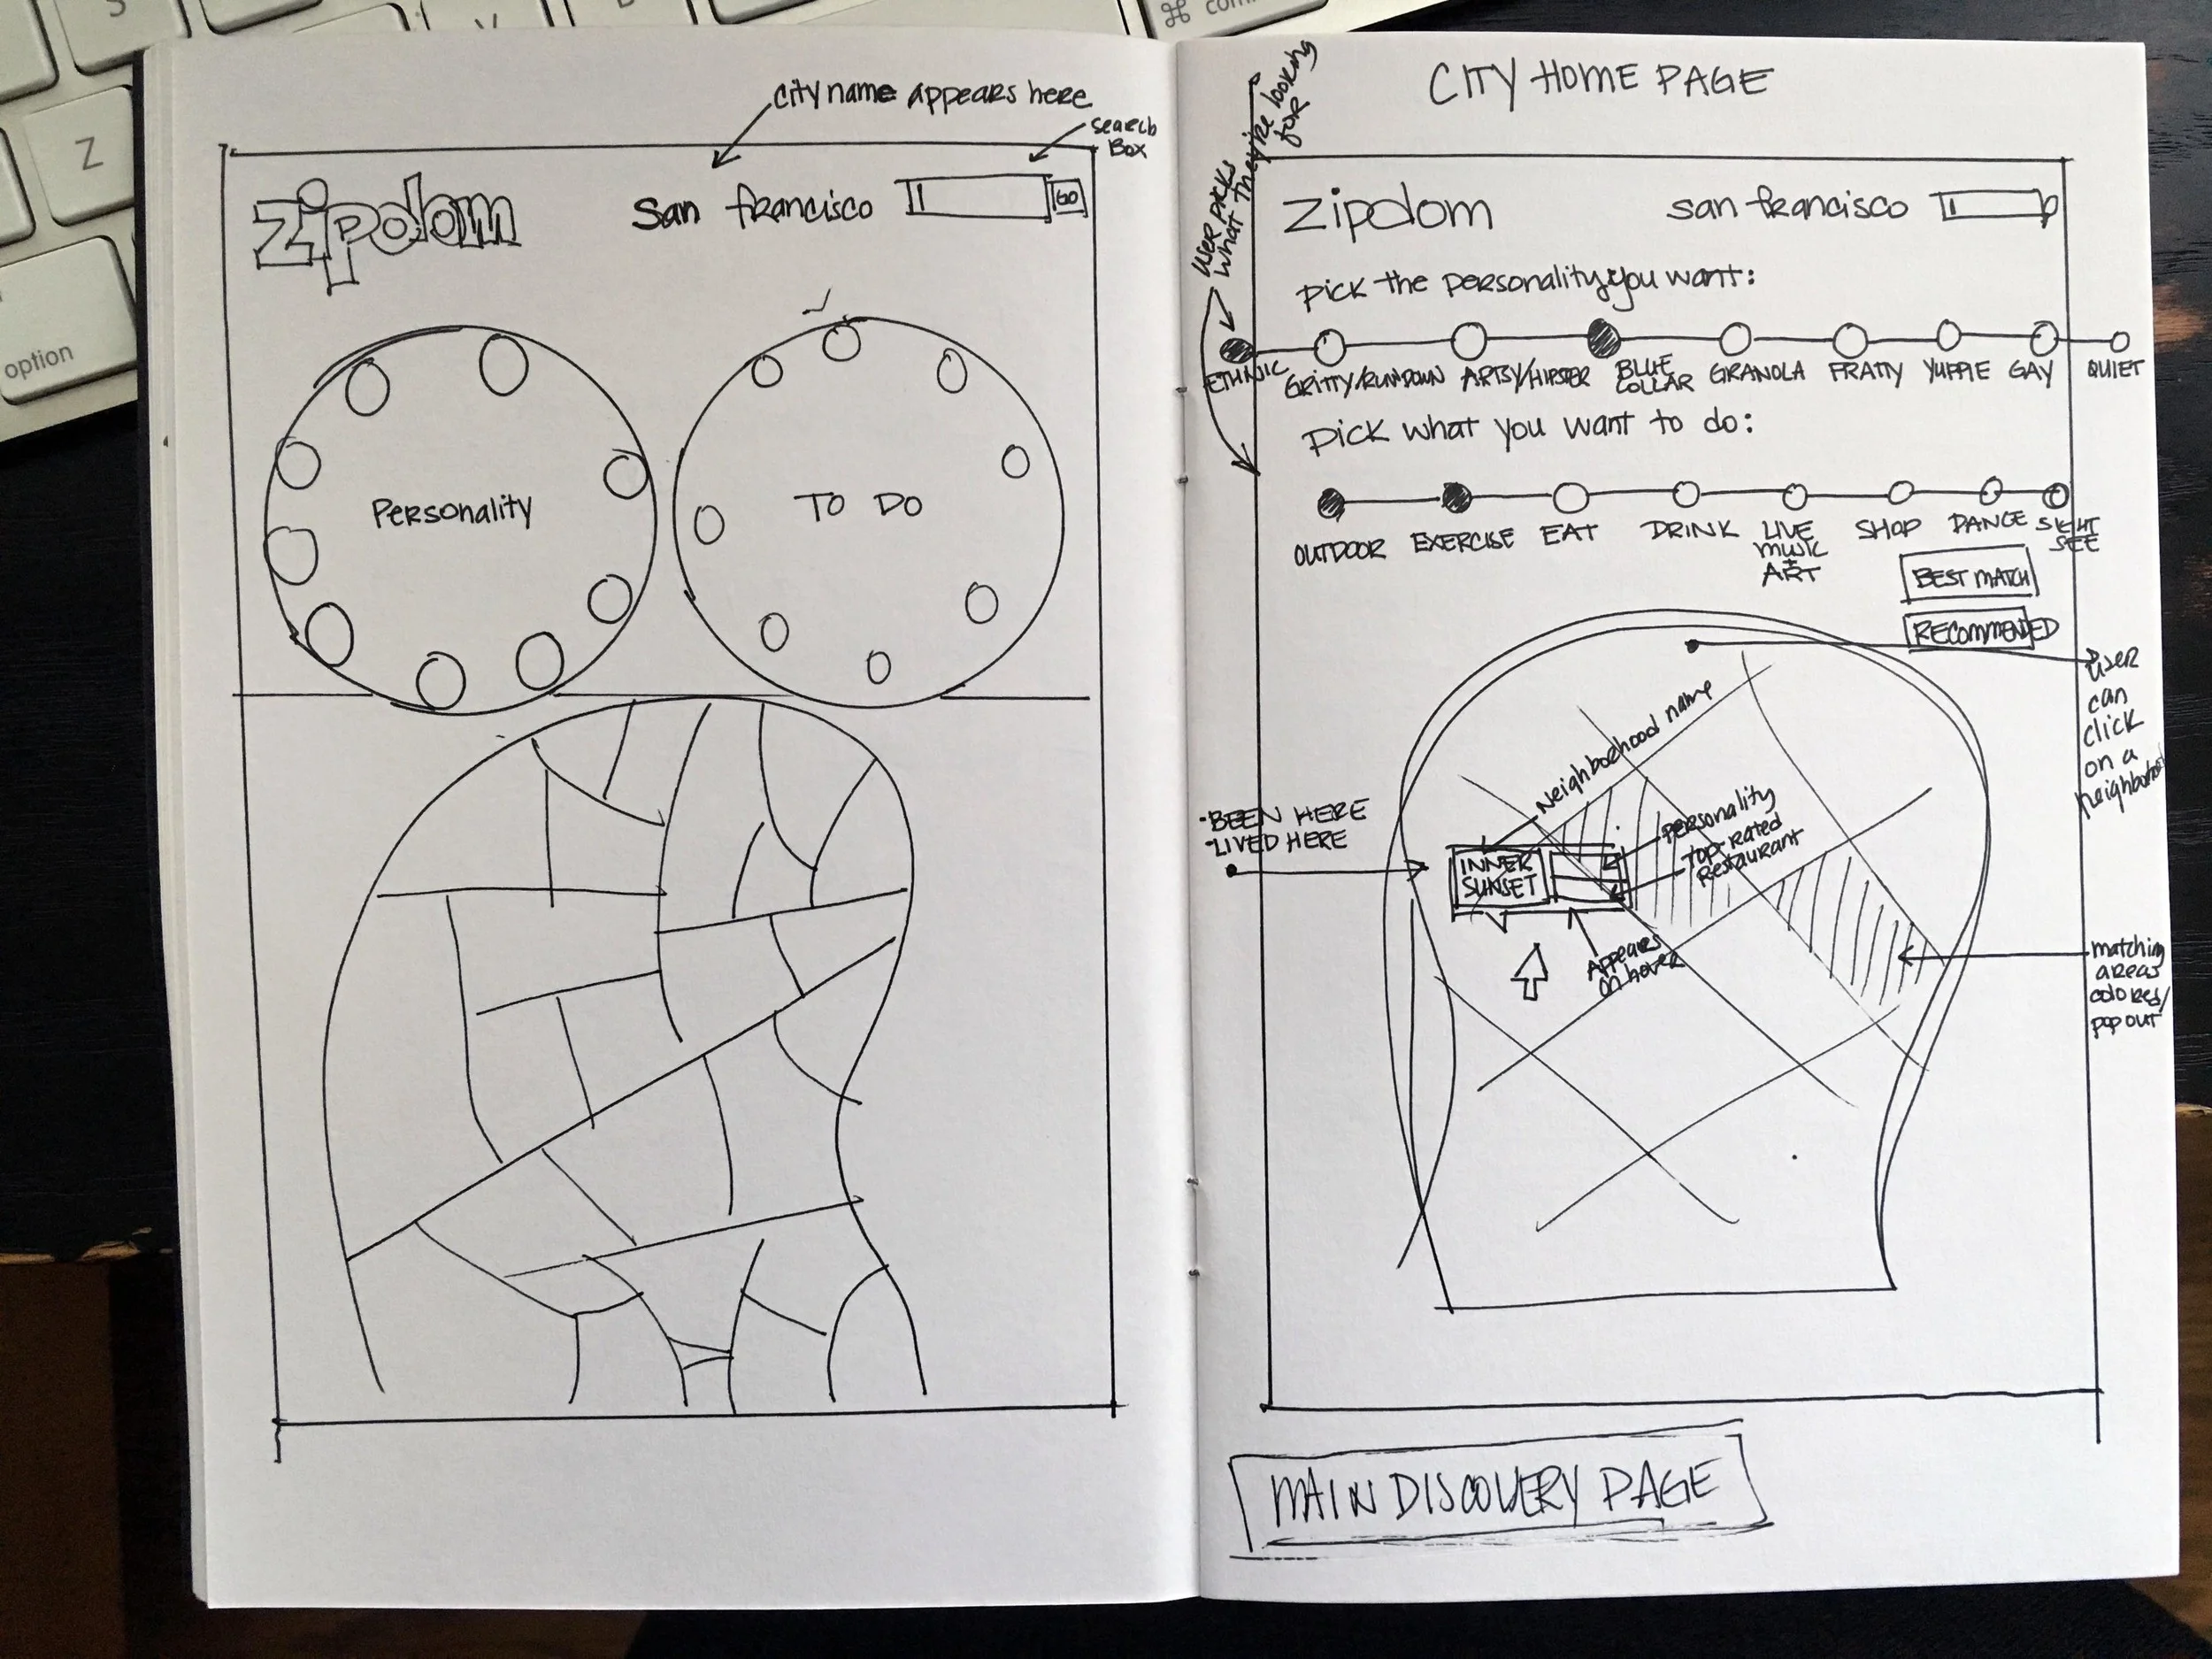 Z
option
⌘
city name appears here
search
Box
zipdom
san francisco
GO
Personality
TO DO
CITY HOME PAGE
user picks
what they're looking
for
zipdom
san francisco
pick the personality you want:
ETHNIC
GRITTY/RUNDOWN
ARTSY/HIPSTER
BLUE
COLLAR
GRANOLA
FRATTY
YUPPIE
GAY
QUIET
pick what you want to do:
OUTDOOR
EXERCISE
EAT
DRINK
LIVE
MUSIC
+
ART
SHOP
DANCE
SIGHT
SEE
BEST MATCH
RECOMMENDED
user
can
click
on a
neighborhood
Neighborhood name
personality
top-rated
restaurant
-BEEN HERE
-LIVED HERE
INNER
SUNSET
Appears
on hover
matching
areas
colored/
pop out
MAIN DISCOVERY PAGE